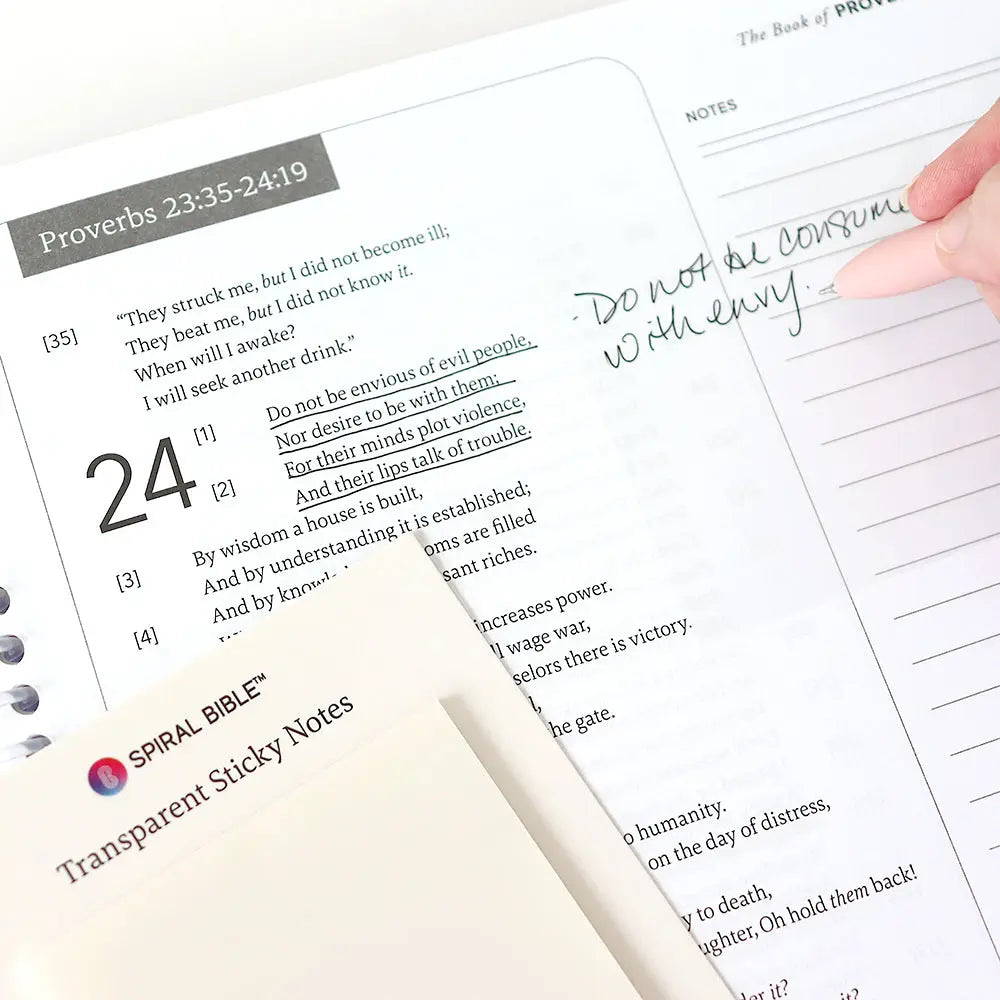 The Book of
NOTES
Proverbs 23:35-24:19
"They struck me, but I did not become ill;
[35] They beat me, but I did not know it.
When will I awake?
I will seek another drink."
- Do not be
with envy.
24 [1] Do not be envious of evil people,
Nor desire to be with them;
[2] For their minds plot violence,
And their lips talk of trouble.
[3] By wisdom a house is built,
And by understanding it is established;
[4] And by are filled
riches.
increases power.
wage war,
there is victory.
he gate.
humanity.
on the day of distress,
to death,
Oh hold them back!
it?
it?
SPIRAL BIBLE™
Transparent Sticky Notes